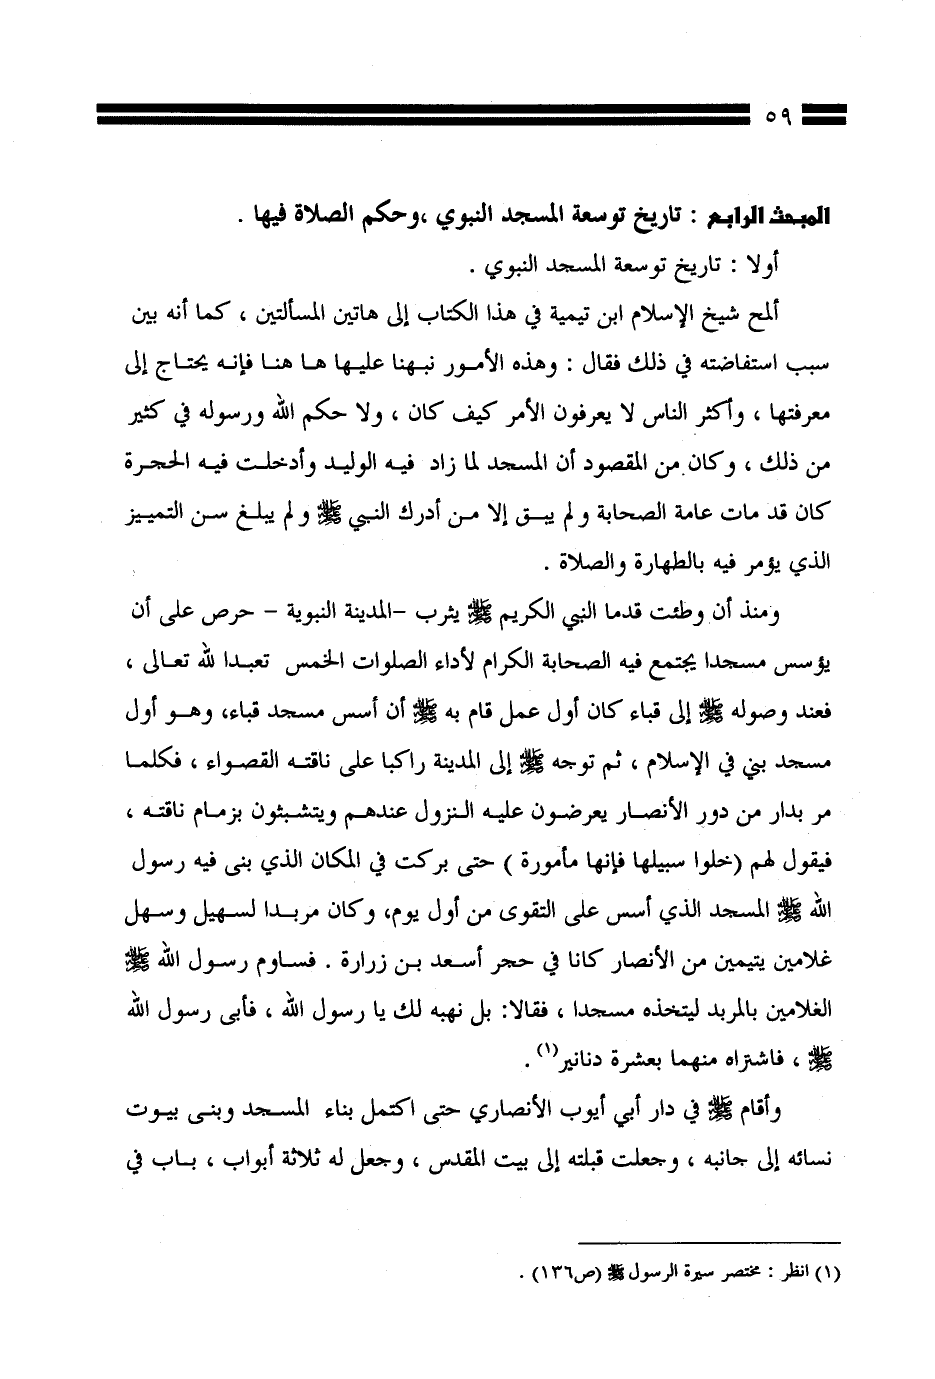 ٥٩
المبحث الرابع : تاريخ توسعة المسجد النبوي ،وحكم الصلاة فيها .
أولا : تاريخ توسعة المسجد النبوي .
ألمح شيخ الإسلام ابن تيمية في هذا الكتاب إلى هاتين المسألتين ، كما أنه بين
سبب استفاضته في ذلك فقال : وهذه الأمور نبهنا عليها ها هنا فإنه يحتاج إلى
معرفتها ، وأكثر الناس لا يعرفون الأمر كيف كان ، ولا حكم الله ورسوله في كثير
من ذلك ، وكان من المقصود أن المسجد لما زاد فيه الوليد وأدخلت فيه الحجرة
كان قد مات عامة الصحابة و لم يبق إلا من أدرك النبي ﷺ و لم يبلغ سن التمييز
الذي يؤمر فيه بالطهارة والصلاة .
ومنذ أن وطئت قدما النبي الكريم ﷺ يثرب -المدينة النبوية - حرص على أن
يؤسس مسجدا يجتمع فيه الصحابة الكرام لأداء الصلوات الخمس تعبدا لله تعالى ،
فعند وصوله ﷺ إلى قباء كان أول عمل قام به ﷺ أن أسس مسجد قباء، وهو أول
مسجد بني في الإسلام ، ثم توجه ﷺ إلى المدينة راكبا على ناقته القصواء ، فكلما
مر بدار من دور الأنصار يعرضون عليه النزول عندهم ويتشبثون بزمام ناقته ،
فيقول لهم (خلوا سبيلها فإنها مأمورة ) حتى بركت في المكان الذي بنى فيه رسول
الله ﷺ المسجد الذي أسس على التقوى من أول يوم، وكان مربدا لسهيل وسهل
غلامين يتيمين من الأنصار كانا في حجر أسعد بن زرارة . فساوم رسول الله ﷺ
الغلامين بالمربد ليتخذه مسجدا ، فقالا: بل نهبه لك يا رسول الله ، فأبى رسول الله
ﷺ ، فاشتراه منهما بعشرة دنانير(١) .
وأقام ﷺ في دار أبي أيوب الأنصاري حتى اكتمل بناء المسجد وبنى بيوت
نسائه إلى جانبه ، وجعلت قبلته إلى بيت المقدس ، وجعل له ثلاثة أبواب ، باب في
(١) انظر : مختصر سيرة الرسول ﷺ (ص١٣٦) .